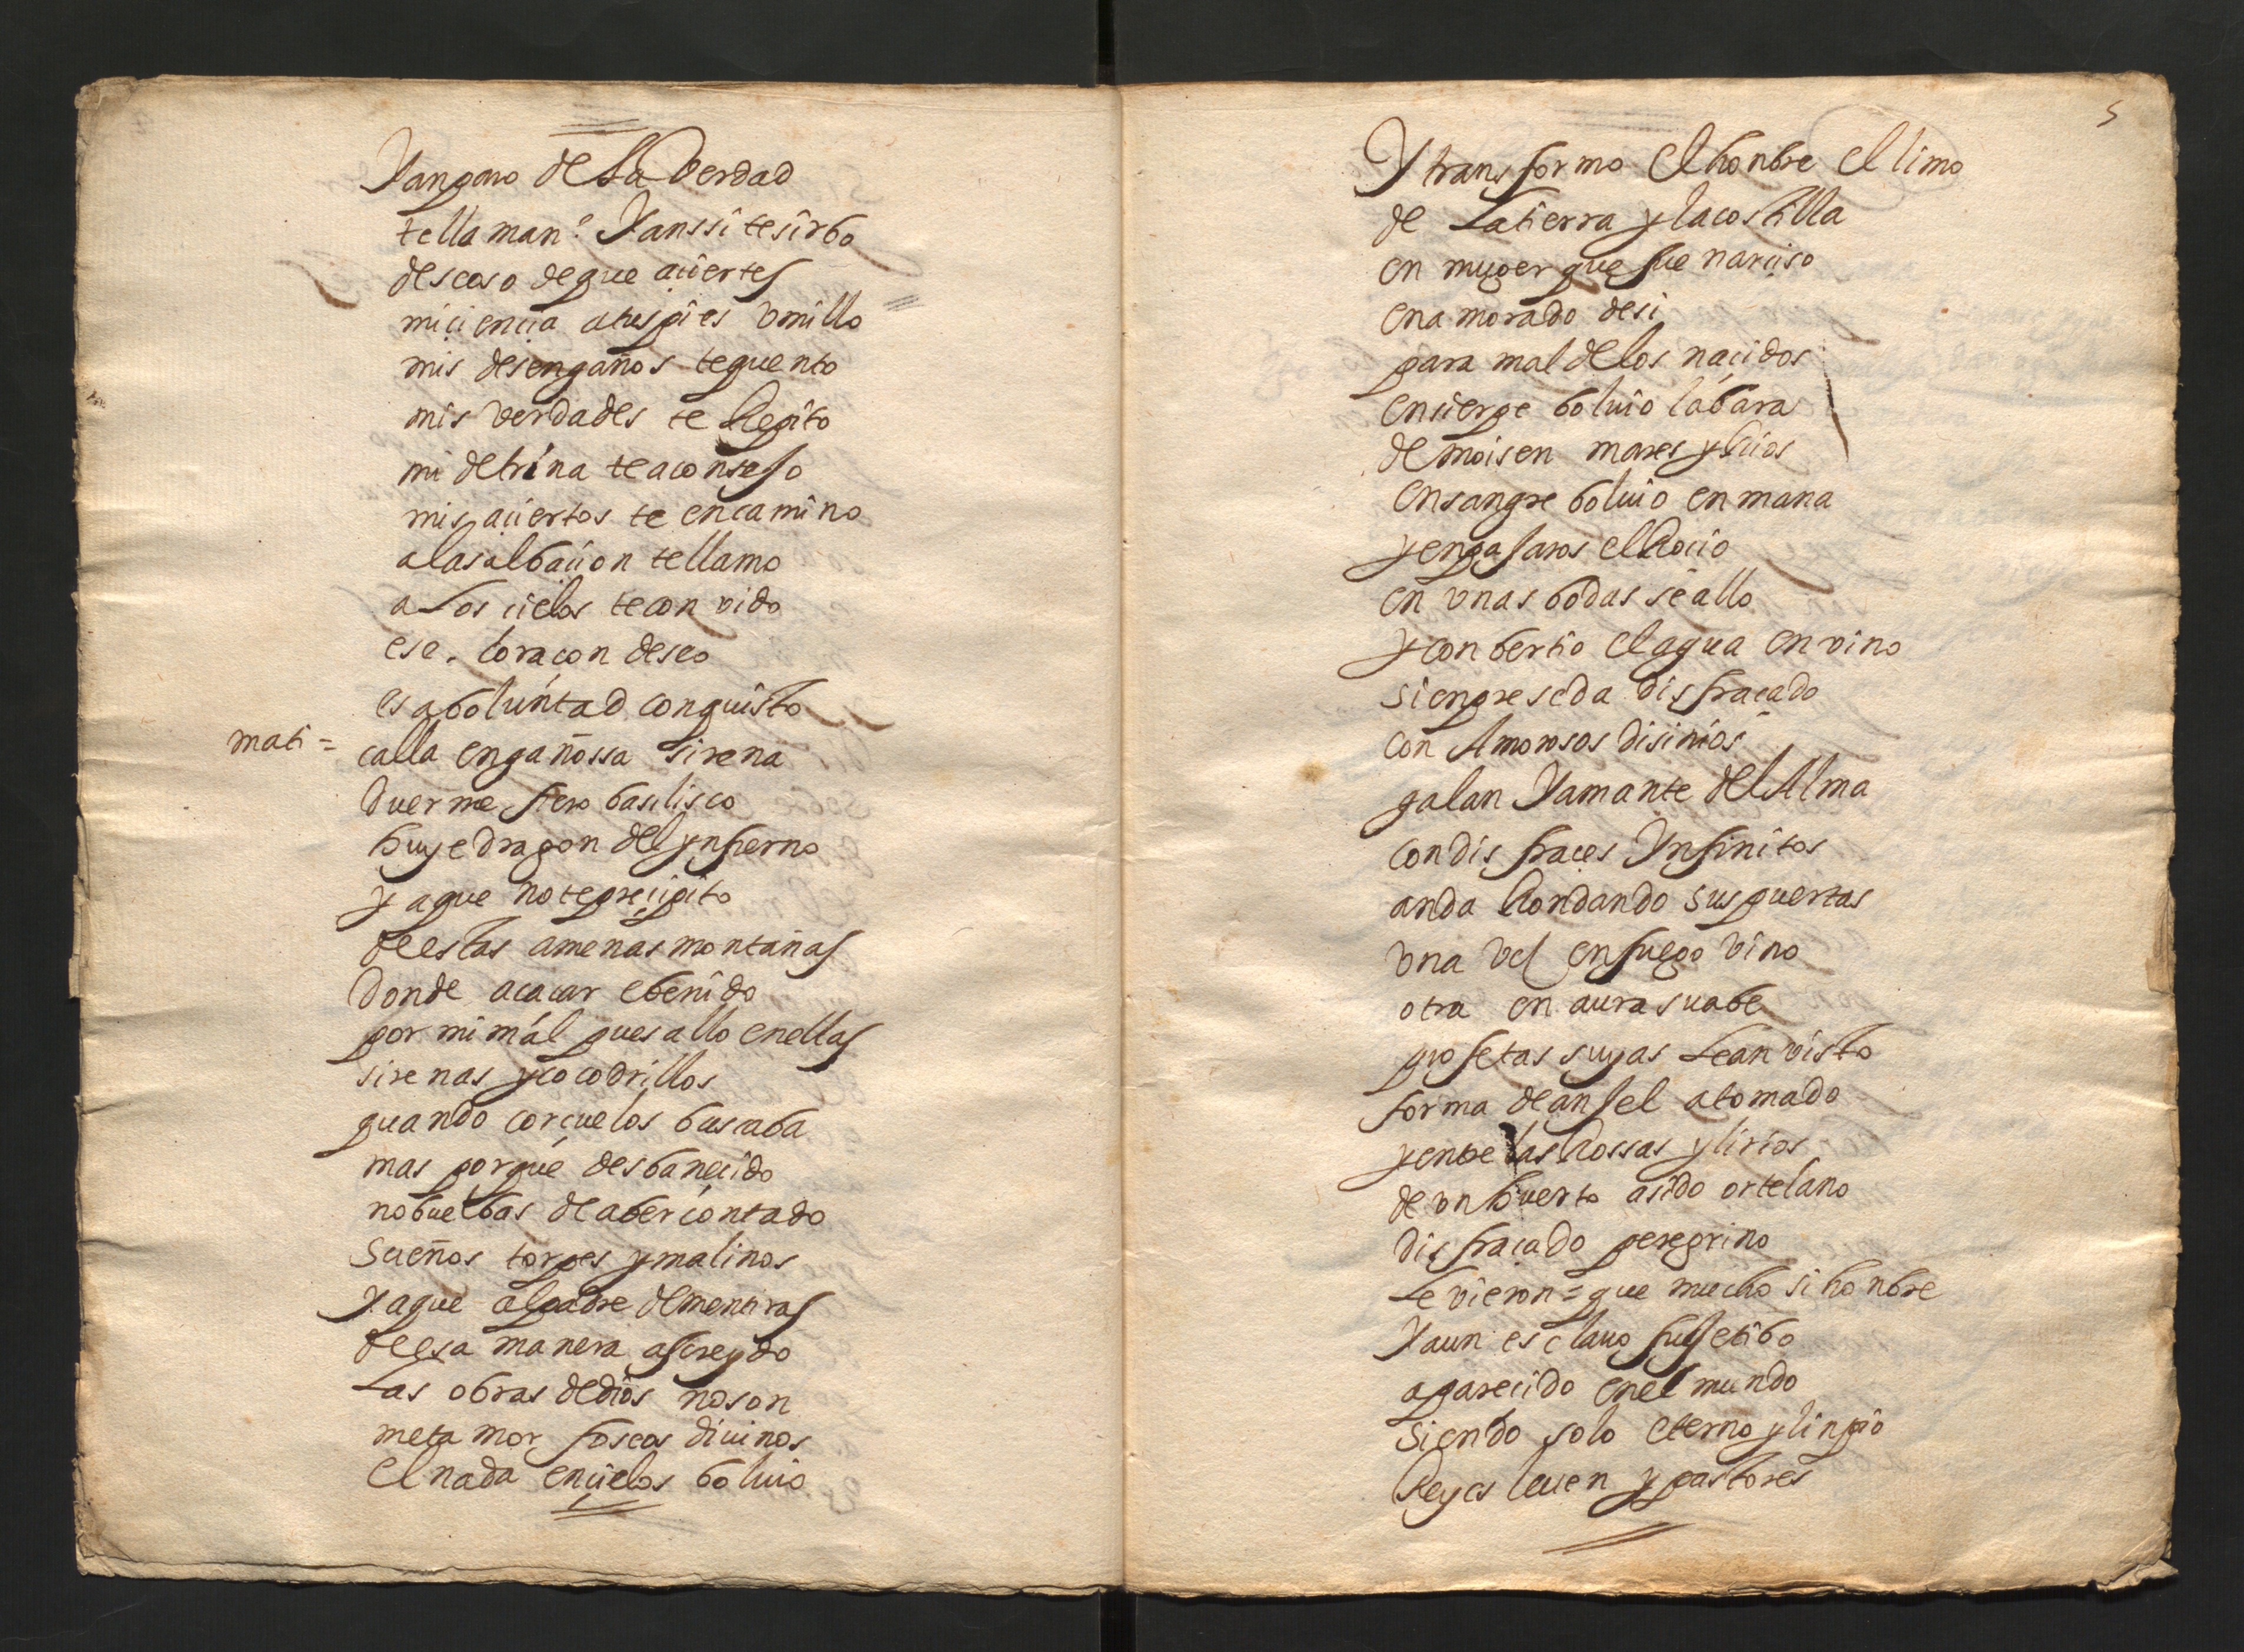 Yanparo de la Verdad
te llaman.º Yanssi te sirbo
deseoso de que açiertes
mi çiençia a tus pies vmillo
mis desengaños te quento
mis verdades te Repito
mi detrina te aconsejo
mis açiertos te encamino
a la salbaçion te llamo
a Los çielos te conuido
ese coraçon deseo
esa boluntad conquisto
mati = calla engañossa sirena
duerme fiero basilisco
huye dragon del ynfierno
ya que no te preçipito
de estas amenas montañas
donde a caçar e benido
por mi mal pues allo en ellas
sirenas y cocodrillos
quando corçuelos buscaba
mas porque desbaneçido
no buelbas de aber contado
sueños torpes y malinos
Ya que al padre de mentiras
de esa manera as creydo
Las obras de dios no son
metamorfoseos diuinos
El nada en çielos boluio
5
Y transformo El honbre El limo
de La tierra y la costilla
en muger que fue narçiso
enamorado de si
para mal de los naçidos
en sierpe boluio la bara
de moisen mares y Rios
en sangre boluio en mana
y en pajaros el Roçio
en vnas bodas se allo
y conbertio el agua en vino
sienpre se da disfraçado
con Amorosos disinios
galan Yamante del Alma
con disfraçes Ynfinitos
anda Rondando sus puertas
vna vez en fuego vino
otra en aura suabe
profetas suyas Le an visto
forma de anjel a tomado
y entre las Rossas y lirios
de vn huerto a sido ortelano
disfraçado peregrino
Le vieron = que mucho si honbre
Yaun esclauo fujetibo
a pareçido en el mundo
siendo solo eterno y linpio
Reyes le uen y pastores